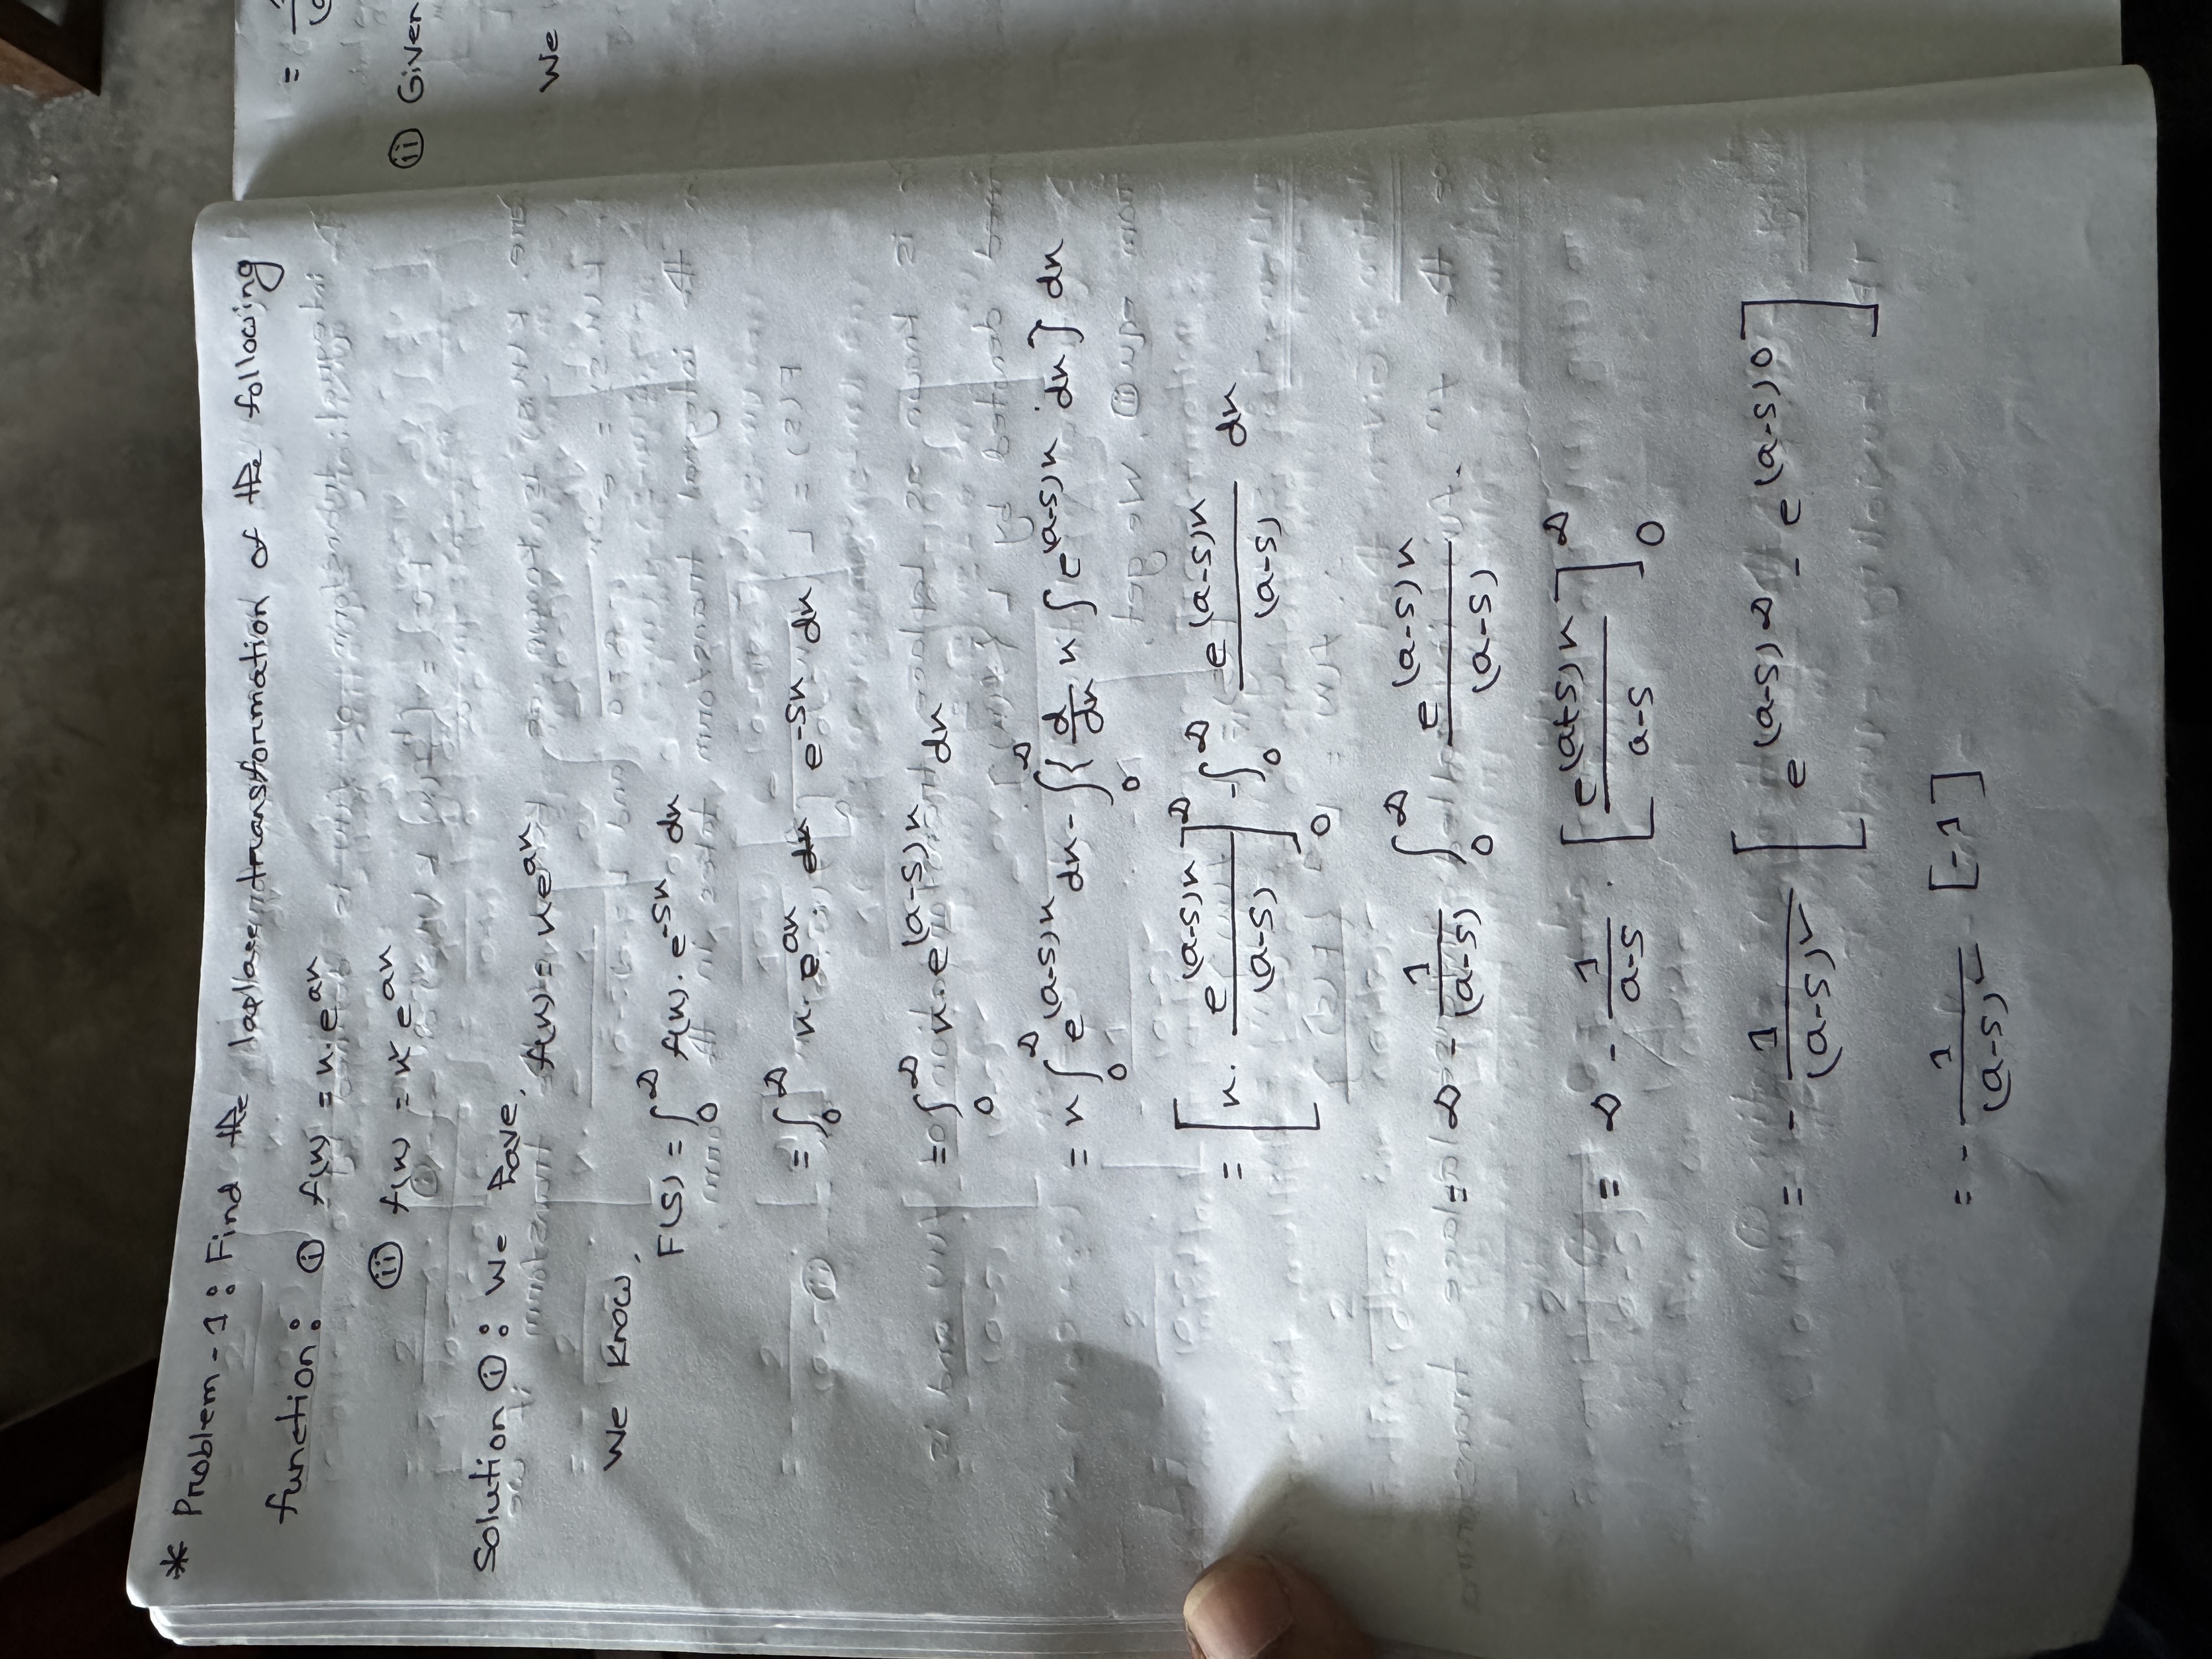 * Problem - 1 : Find the laplace transformation of the following
function : (i) f(x) = x. e^{ax}
(ii) f(x) = x² e^{ax}
Solution (i) : We have,
f(x) = xe^{ax}
We know,
F(S) = ∫_0^∞ f(x). e^{-Sx} dx
= ∫_0^∞ x. e^{ax}. e^{-Sx} dx
= ∫_0^∞ x. e^{(a-S)x} dx
= x ∫_0^∞ e^{(a-S)x} dx - ∫_0^∞ { d/dx x ∫ e^{(a-S)x} dx } dx
= [ x. e^{(a-S)x} / (a-S) ]_0^∞ - ∫_0^∞ e^{(a-S)x} / (a-S) dx
= ∞ - 1/(a-S) ∫_0^∞ e^{(a-S)x} / (a-S) .
= ∞ - 1/a-S . [ e^{(a+S)x} / a-S ]_0^∞
= - 1/(a-S)² [ e^{(a-S)∞} - e^{(a-S)0} ]
= - 1/(a-S)² [-1]
= 1
(ii) Given
We